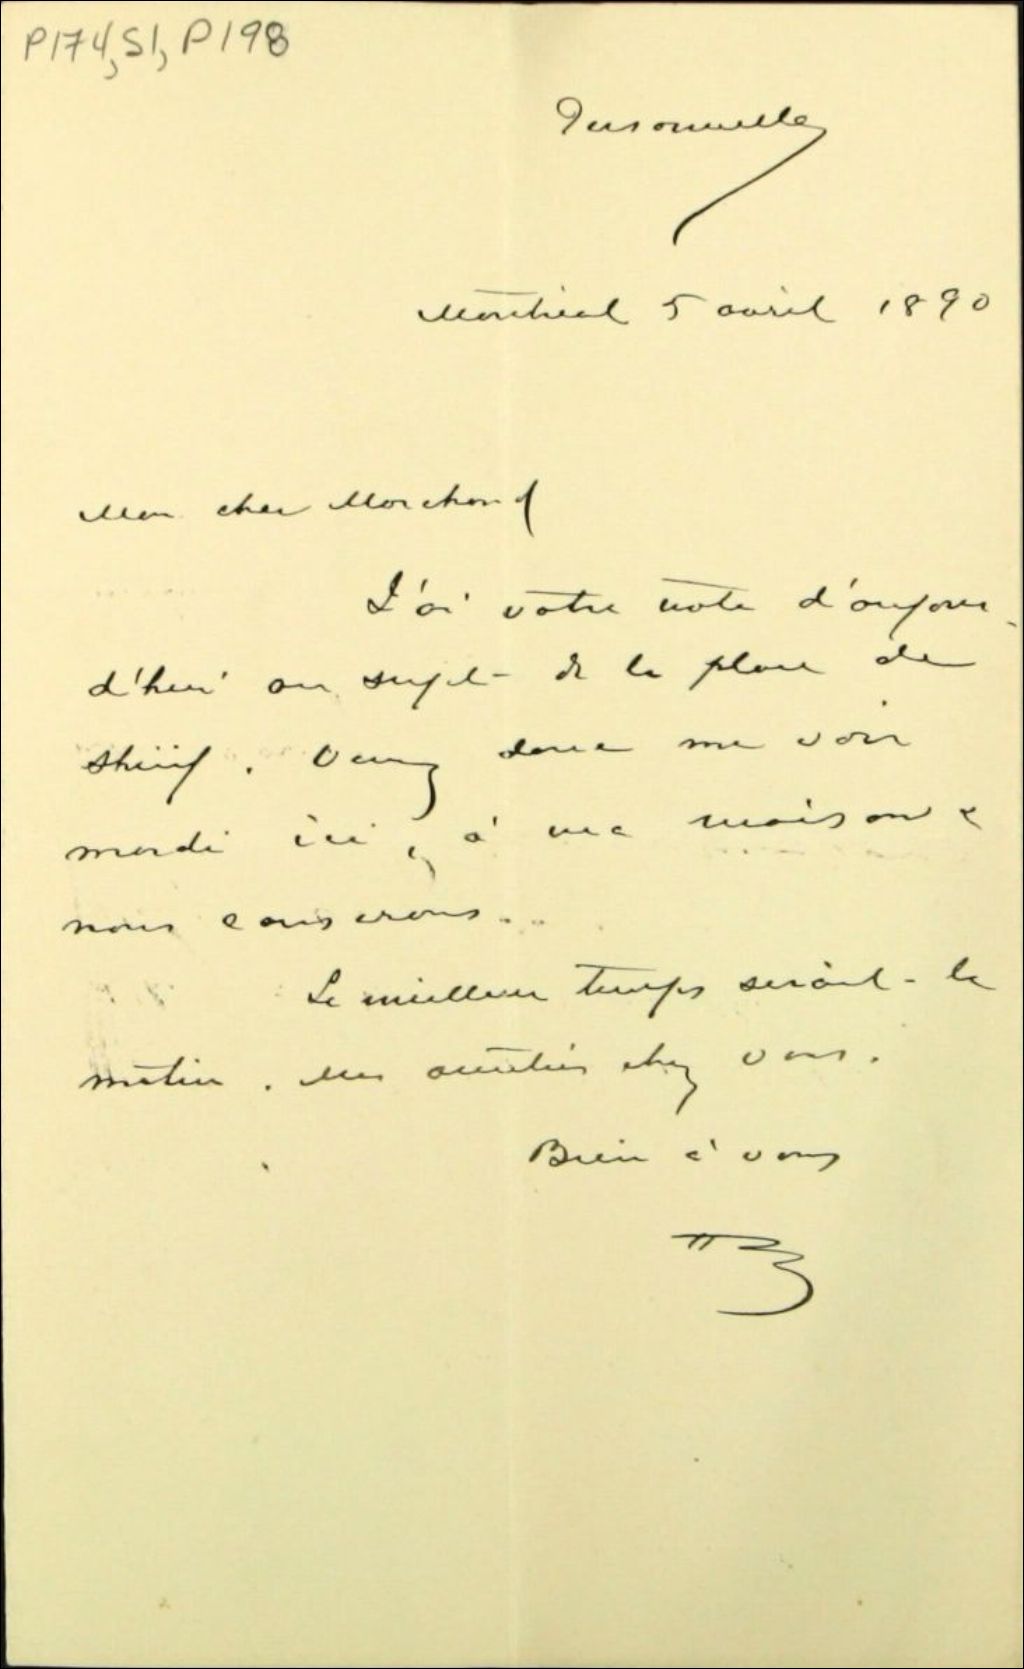 P174,S1,P198
Personnelle
Montréal 5 avril 1890
Mon cher Marchand
J'ai votre note d'aujour-
d'hui au sujet de la place de
shérif. Venez donc me voir
mardi ici, à ma maison &
nous causerons..
Le meilleur temps serait le
matin. Mes amitiés chez vous.
Bien à vous